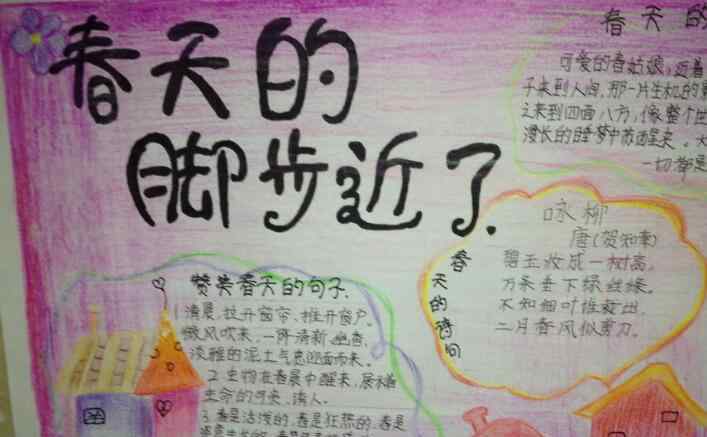 春天的
脚步近了
春天的
可爱的春姑娘,迈着
子来到人间,那一片生机的
之来到四面八方,像整个世
漫长的睡梦中苏醒来。大
一切都是
咏柳
唐(贺知章)
碧玉妆成一树高,
万条垂下绿丝绦。
不知细叶谁裁出,
二月春风似剪刀。
春天的诗句
赞美春天的句子.
1.清晨,拉开窗帘,推开窗户。
微风吹来,一阵清新、幽香、
淡雅的泥土气息迎面而来。
2.生物在春景中醒来,展示着
生命的可亲,诱人。
3.春是活泼的,春是狂热的,春是